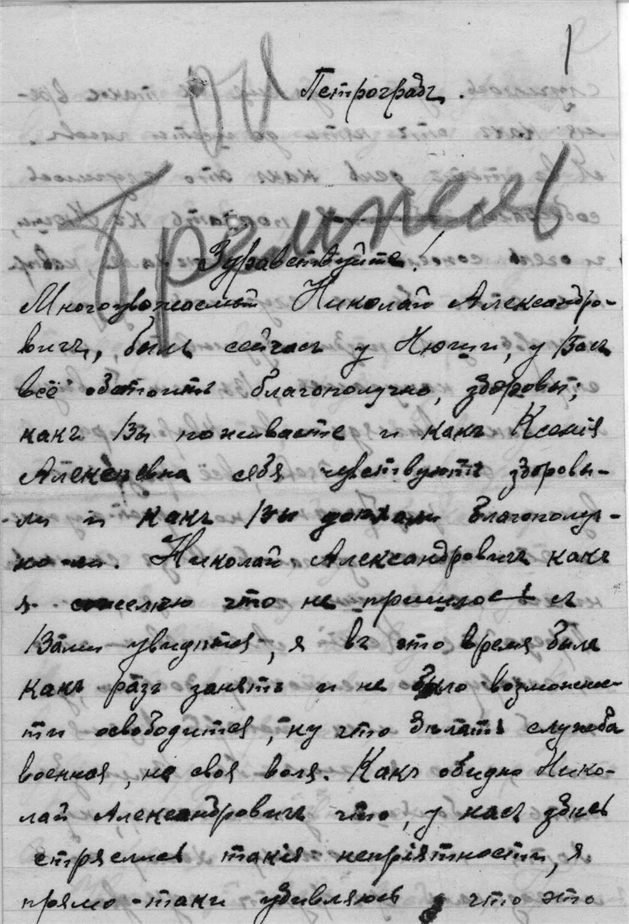 1
Петроградъ.
Грампель
Здравствуйте!
Многоуважаемый Николай Александро-
вичъ, былъ сейчасъ у Нюши, у Васъ
всё обстоитъ благополучно, здоровы;
какъ Вы поживаете и какъ Ксенія
Алексѣевна себя чувствуютъ здоровы-
ли и какъ Вы доѣхали благополуч-
но-ли. Николай Александровичъ какъ
я сожелѣю что не пришлось съ
Вами увидится, я въ это время былъ
какъ разъ занятъ и не было возможнос-
ти освободится, ну что дѣлать служба
военная, не своя воля. Какъ обидно Нико-
лай Александровичъ что, у насъ здѣсь
стряслись такія непріятности, я
прямо-таки удивляюсь что это